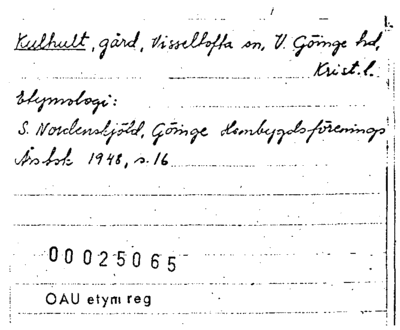 Kulhult, gård, Visseltofta sn, V. Göinge hd,
Krist. l.
Etymologi:
S. Nordenskjöld, Göinge Hembygdsförenings
Årsbok 1948, s. 16
00025065
OAU etym reg